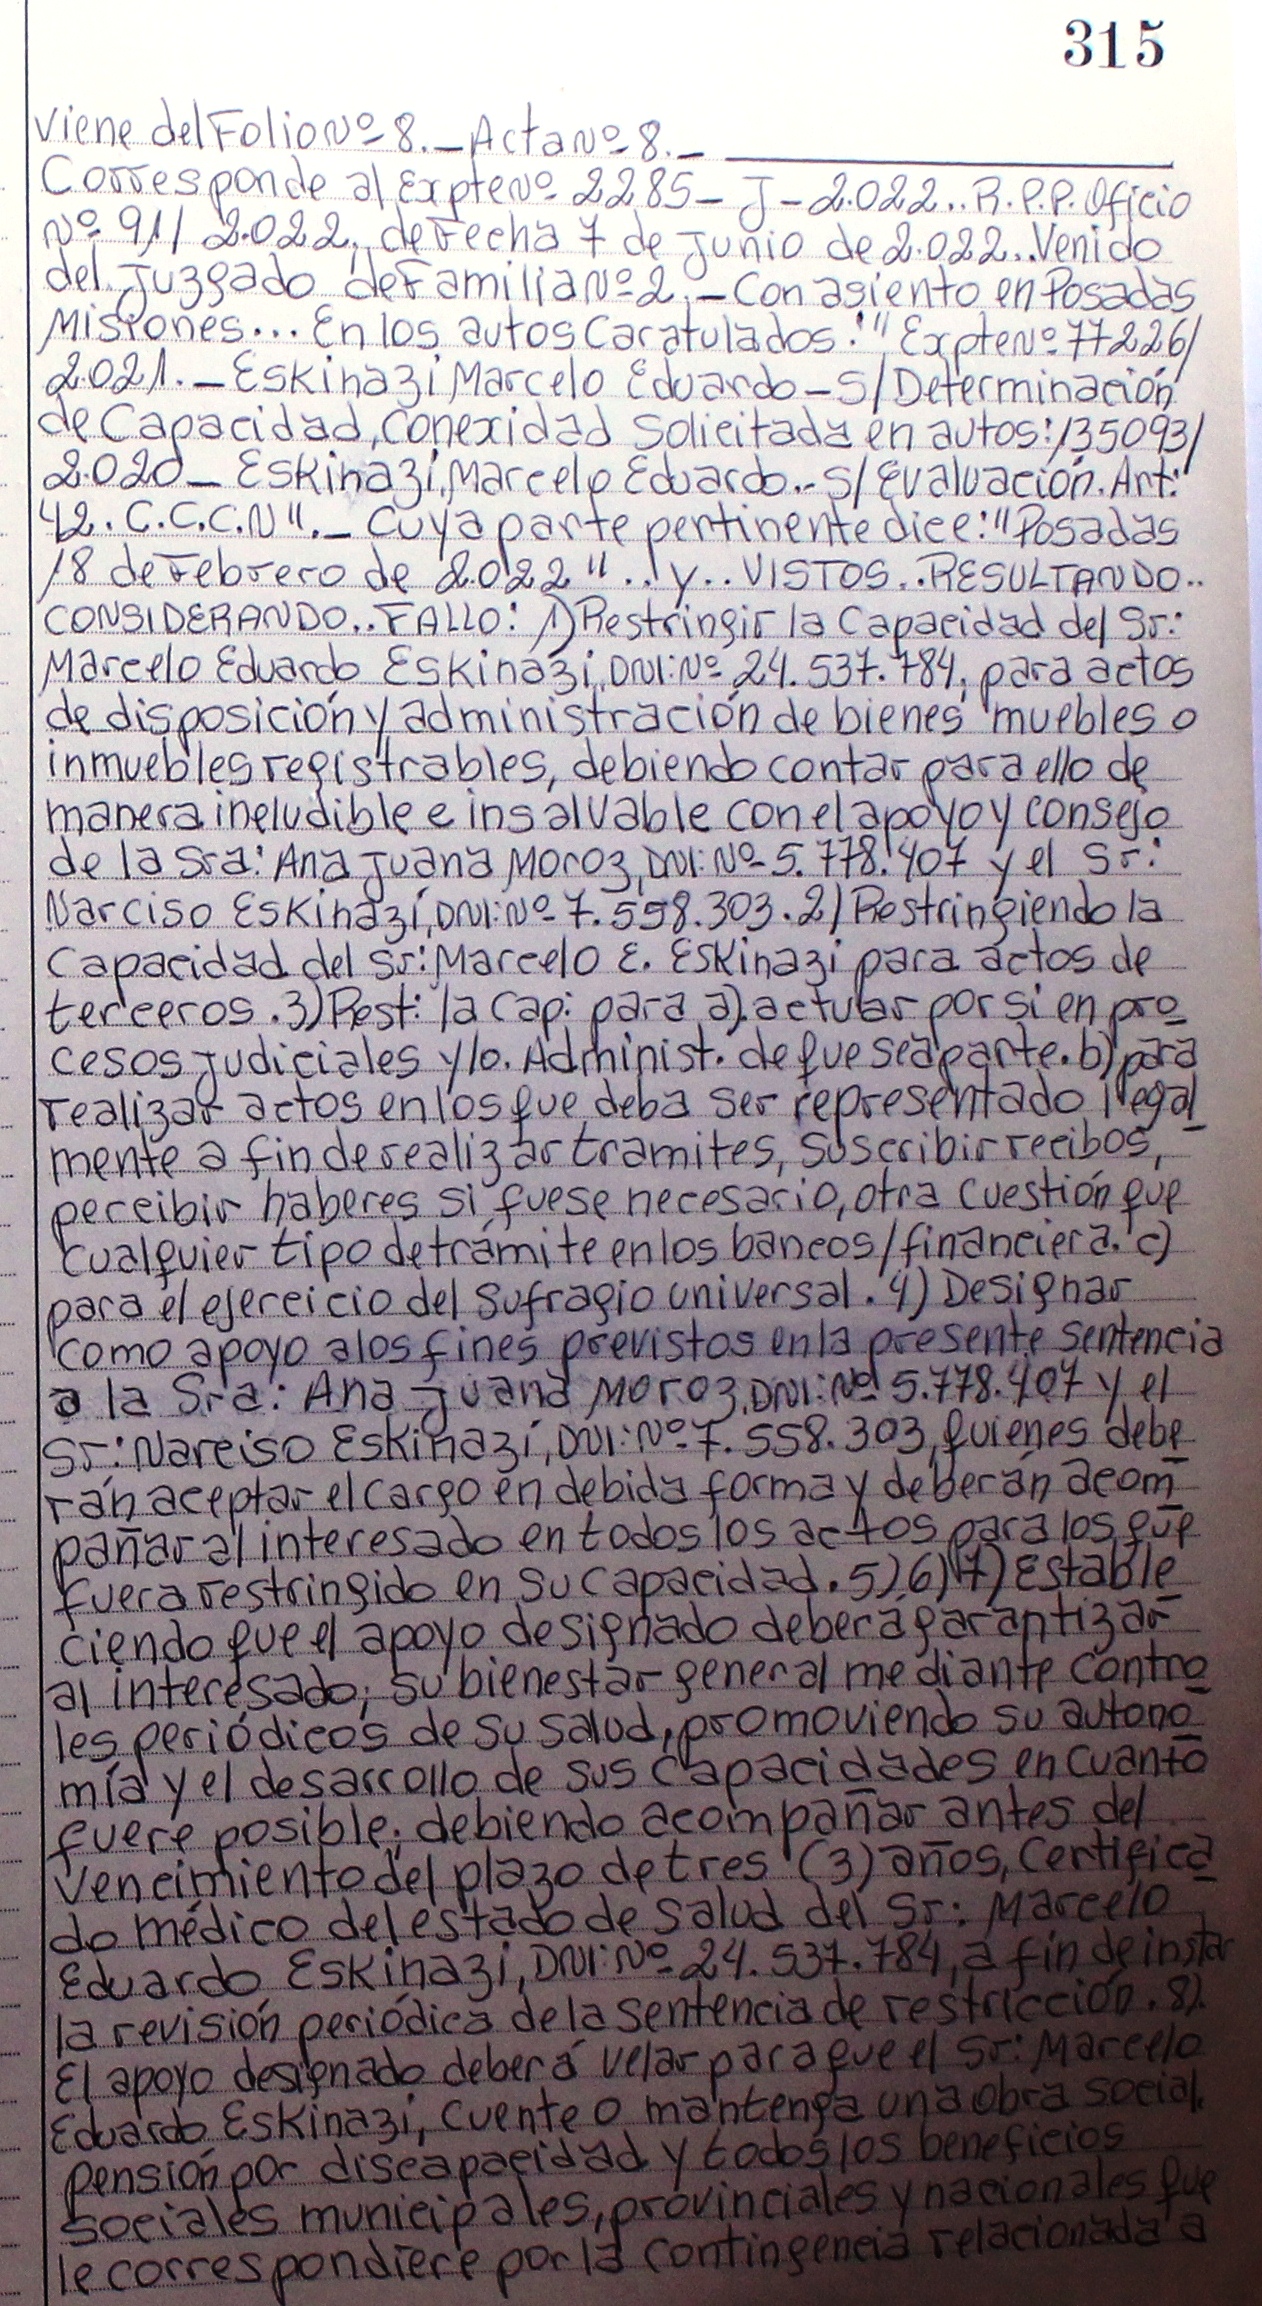 315
Viene del Folio Nº 8._ Acta Nº 8._
Corresponde al Expte Nº 2285_ J_2.022.. R.P.P. Oficio
Nº 911/2.022, de Fecha 7 de Junio de 2.022.. Venido
del Juzgado de Familia Nº 2,_ Con asiento en Posadas
Misiones... En los autos Caratulados: "Expte Nº 77226/
2.021._ Eskinazi Marcelo Eduardo_S/Determinación
de Capacidad, Conexidad Solicitada en autos: 135093/
2.020_ Eskinazi, Marcelo Eduardo.-S/Evaluación. Art:
42. C.C.C.N"._ Cuya parte pertinente dice: "Posadas
18 de Febrero de 2.022"..y..VISTOS..RESULTANDO..
CONSIDERANDO..FALLO: 1) Restringir la Capacidad del Sr:
Marcelo Eduardo Eskinazi, DNI: Nº 24.537.784, para actos
de disposición y administración de bienes muebles o
inmuebles registrables, debiendo contar para ello de
manera ineludible e insalvable con el apoyo y consejo
de la Sra: Ana Juana Moroz, DNI: Nº 5.778.407 y el Sr:
Narciso Eskinazi, DNI: Nº 7.558.303. 2) Restringiendo la
Capacidad del Sr: Marcelo E. Eskinazi para actos de
terceros. 3) Rest: la Cap: para a) actuar por si en pro
cesos Judiciales y/o. Administ. de que sea parte. b) para
realizar actos en los que deba ser representado legal
mente a fin de realizar tramites, suscribir recibos,
percibir haberes si fuese necesario, otra cuestión que
cualquier tipo de trámite en los bancos/financiera. c)
para el ejercicio del sufragio universal. 4) Designar
como apoyo a los fines previstos en la presente sentencia
a la Sra: Ana Juana Moroz, DNI: Nº 5.778.407 y el
Sr: Narciso Eskinazi, DNI: Nº 7.558.303, quienes debe
rán aceptar el cargo en debida forma y deberán acom
pañar al interesado en todos los actos para los que
fuera restringido en su capacidad. 5) 6) 7) Estable
ciendo que el apoyo designado deberá garantizar
al interesado; su bienestar general mediante contro
les periódicos de su salud, promoviendo su autono
mía y el desarrollo de sus Capacidades en cuanto
fuere posible; debiendo acompañar antes del
Vencimiento del plazo de tres (3) años, Certifica
do médico del estado de salud del Sr: Marcelo
Eduardo Eskinazi, DNI: Nº 24.537.784, a fin de instar
la revisión periódica de la sentencia de restricción. 8)
El apoyo designado deberá velar para que el Sr: Marcelo
Eduardo Eskinazi, cuente o mantenga una obra social,
pensión por discapacidad y todos los beneficios
sociales municipales, provinciales y nacionales que
le correspondiere por la contingencia relacionada a